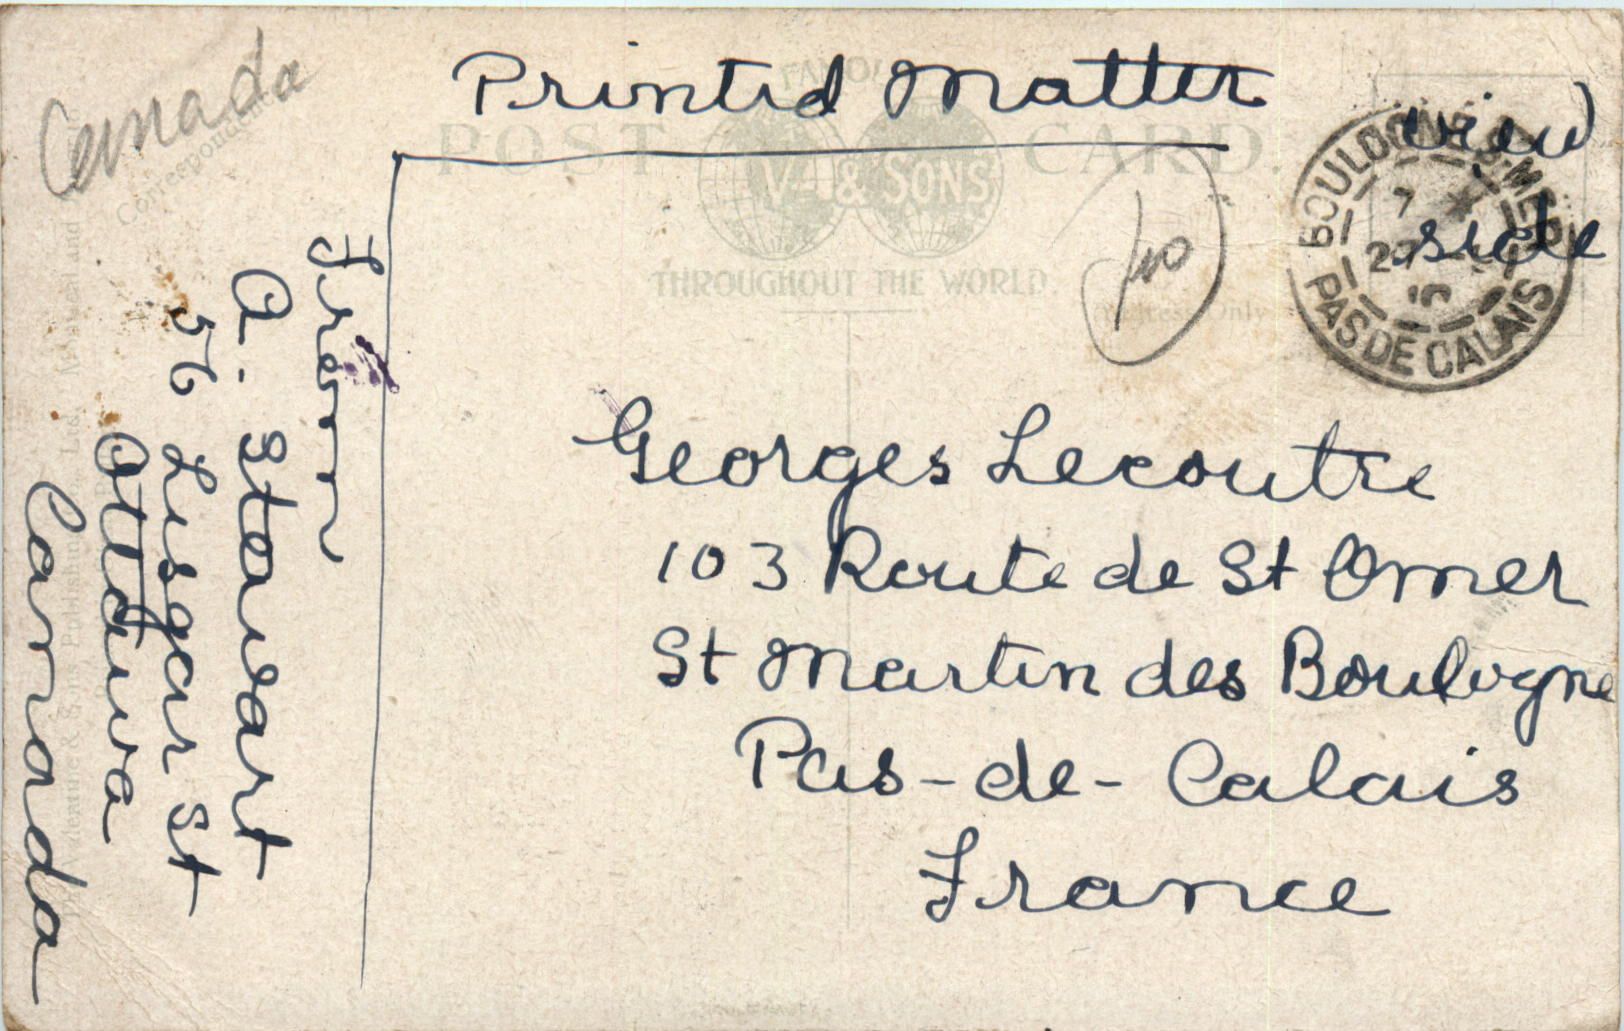 Canada
Printed Matter
view
side
FAMOUS
POST CARD.
V- & SONS
THROUGHOUT THE WORLD
Correspondence
Address Only
BOULOGNE-S-MER
7
27
PAS DE CALAIS
40
From
A. Stewart
56 Lisgar St
Ottawa
Canada
Georges Lecoutre
103 Route de St Omer
St Martin des Boulogne
Pas-de-Calais
France